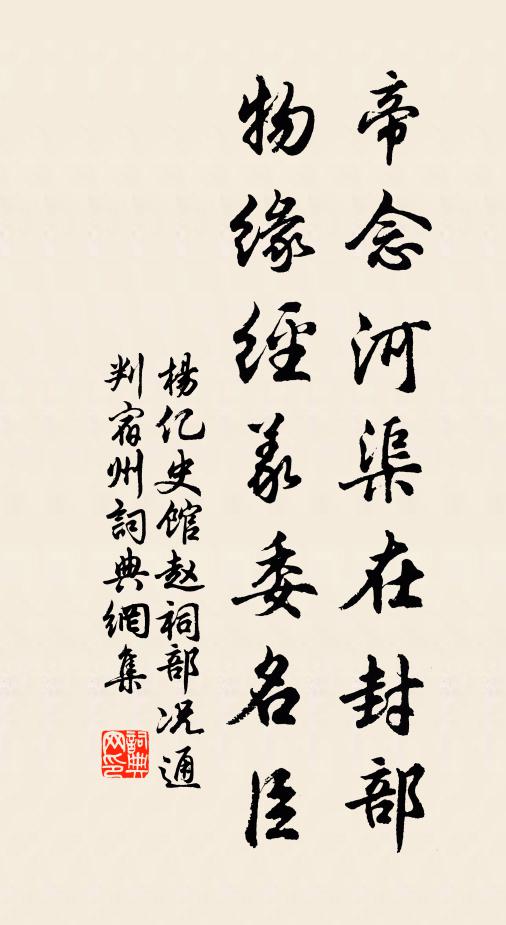 帝念河渠在封部
物缘經義委名臣
楊亿史馆赵祠部况通
判宿州詞典網集
詞典
网印